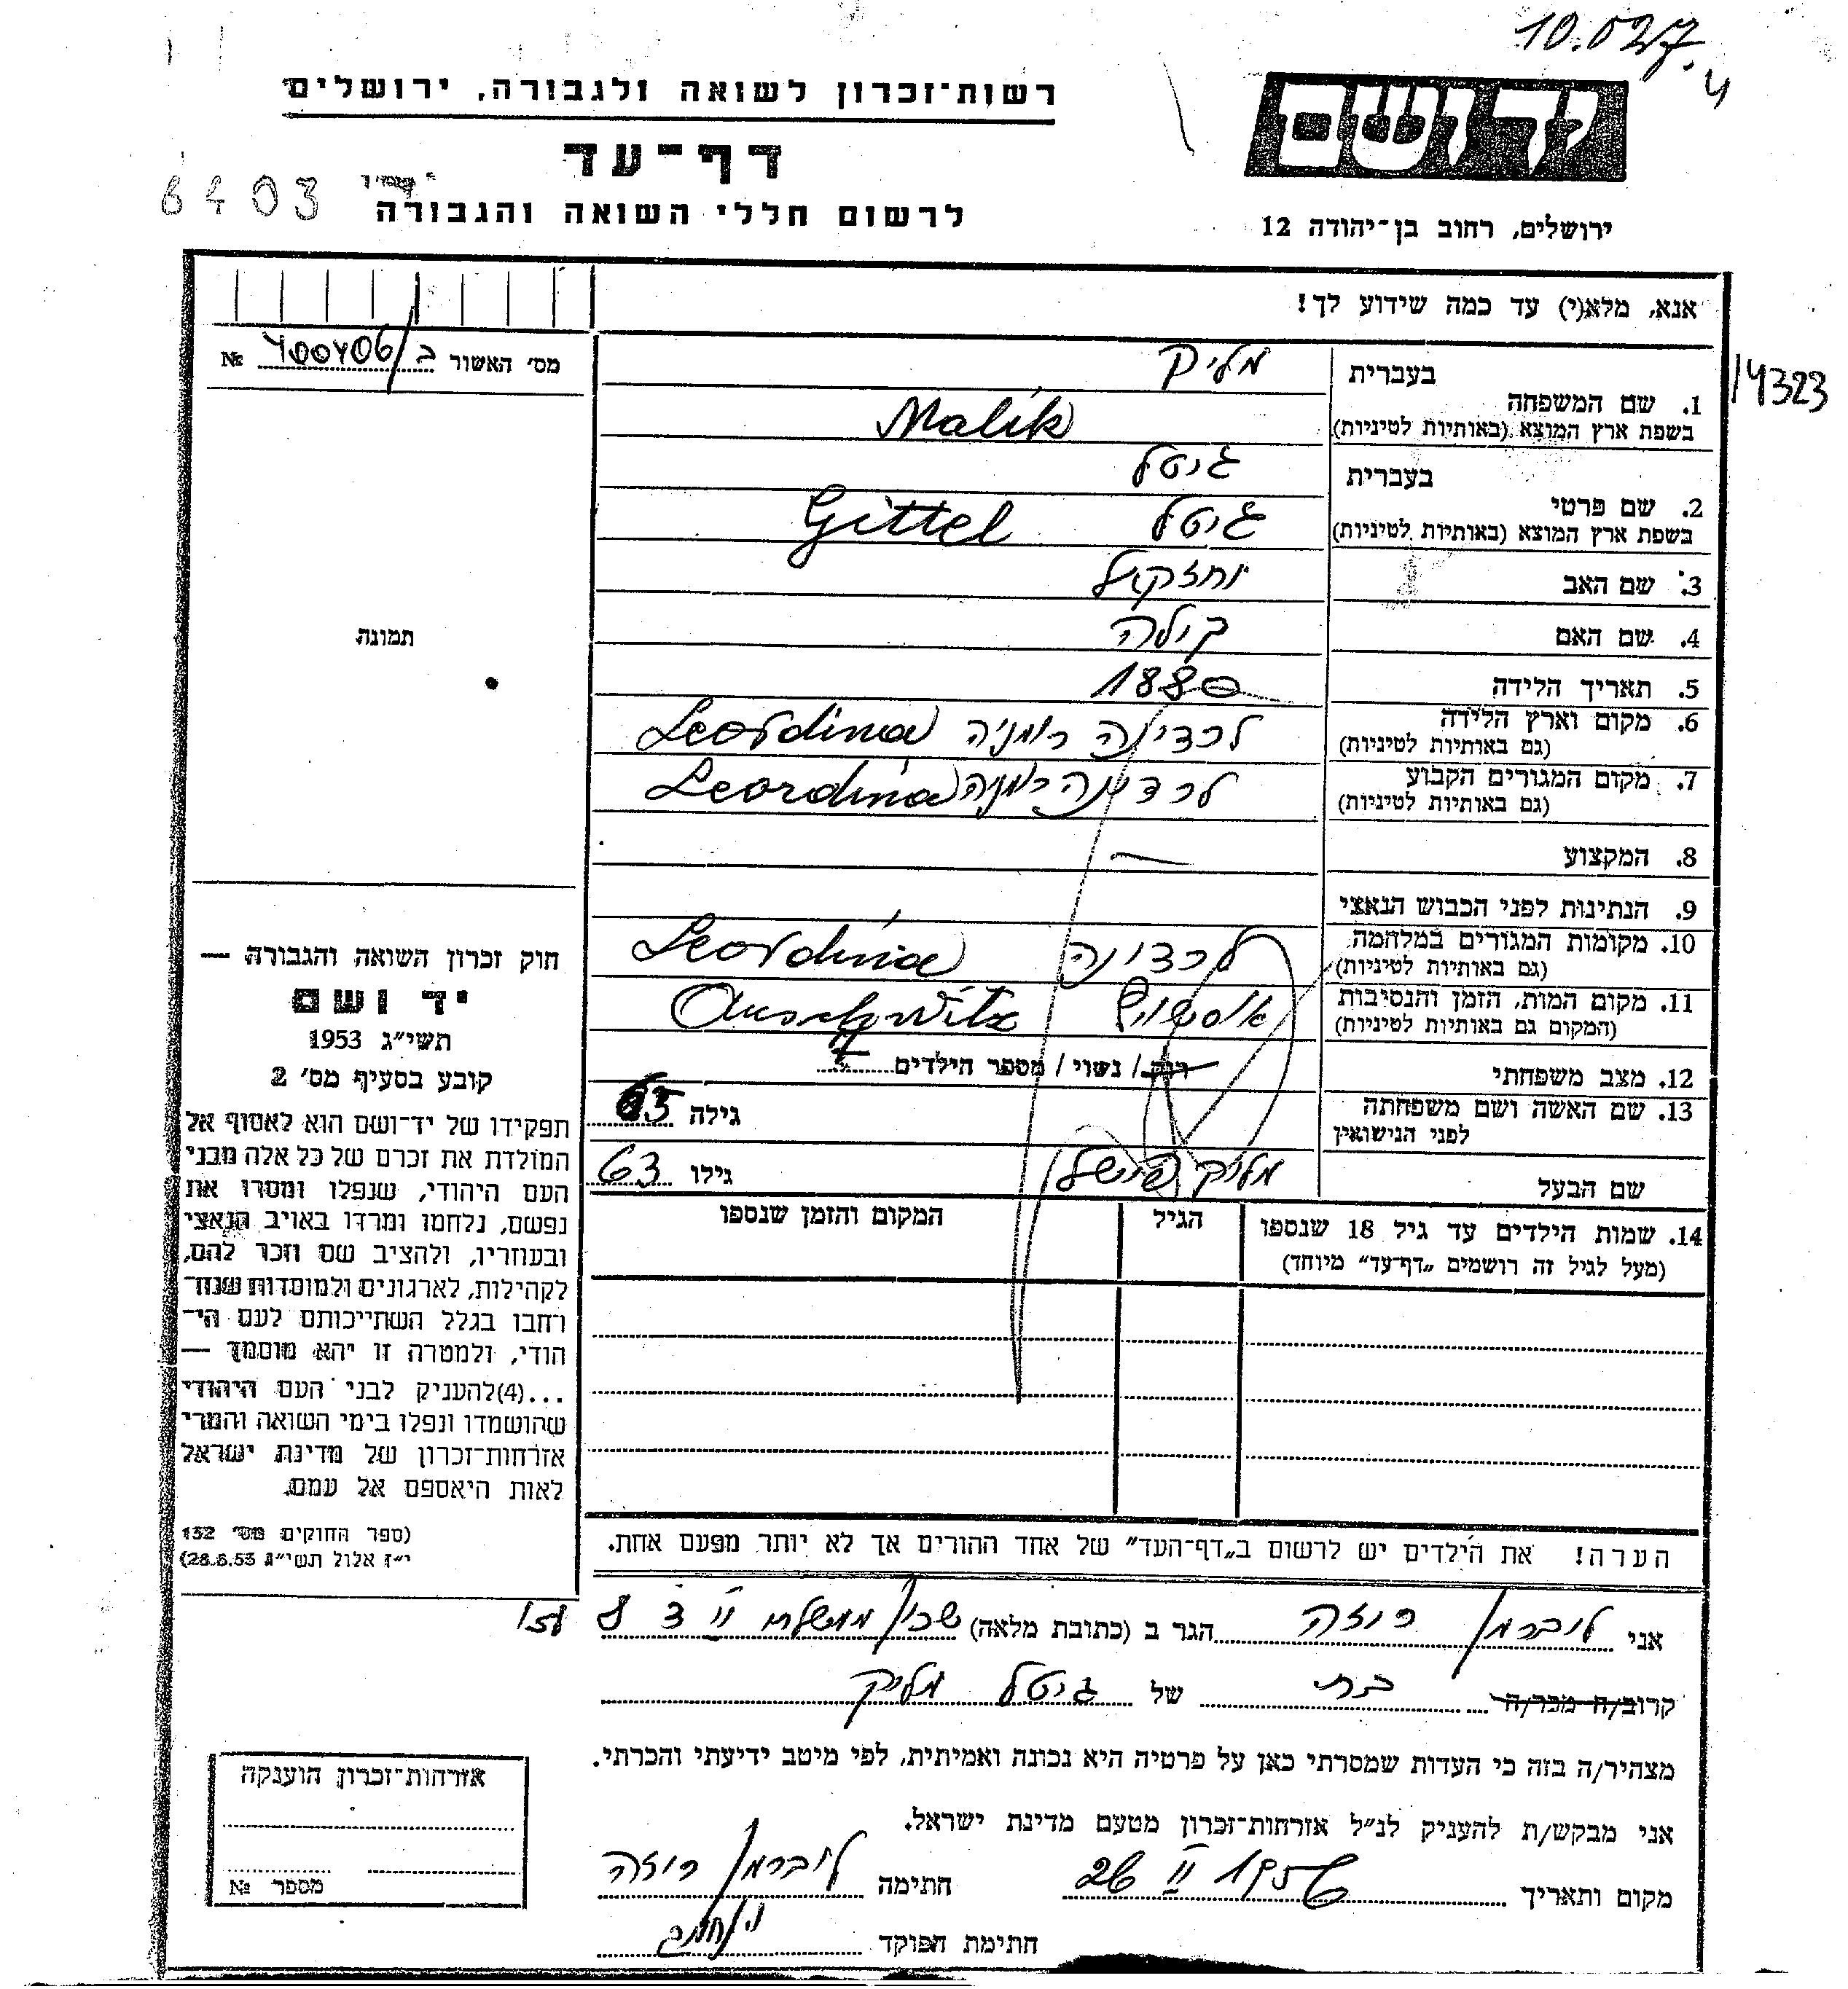 10.027.4
רשות־זכרון לשואה ולגבורה, ירושלים
יד ושם
דף־עד
6403
לרשום חללי השואה והגבורה
ירושלים, רחוב בן־יהודה 12
אנא, מלא(י) עד כמה שידוע לך!
מס׳ האשור №
14323
בעברית מליק
1. שם המשפחה
בשפת ארץ המוצא (באותיות לטיניות) Malik
בעברית גיטל
2. שם פרטי
בשפת ארץ המוצא (באותיות לטיניות) גיטל Gittel
3. שם האב יחזקאל
4. שם האם בילה
5. תאריך הלידה 1880
6. מקום וארץ הלידה
(גם באותיות לטיניות) לרדינה רומניה Leordina
7. מקום המגורים הקבוע
(גם באותיות לטיניות) לרדינה רומניה Leordina
8. המקצוע —
9. הנתינות לפני הכבוש הנאצי
10. מקומות המגורים במלחמה
(גם באותיות לטיניות) לרדינה Leordina
11. מקום המות, הזמן והנסיבות
(המקום גם באותיות לטיניות) אושויץ Auschwitz
12. מצב משפחתי רווק / נשוי / מספר הילדים 7
13. שם האשה ושם משפחתה
לפני הנישואין
גילה 65
שם הבעל מליק פישל גילו 63
14. שמות הילדים עד גיל 18 שנספו
(מעל לגיל זה רושמים „דף־עד” מיוחד)
הגיל
המקום והזמן שנספו
תמונה
חוק זכרון השואה והגבורה —
יד ושם
תשי״ג 1953
קובע בסעיף מס׳ 2
תפקידו של יד־ושם הוא לאסוף אל
המולדת את זכרם של כל אלה מבני
העם היהודי, שנפלו ומסרו את
נפשם, נלחמו ומרדו באויב הנאצי
ובעוזריו, ולהציב שם וזכר להם,
לקהילות, לארגונים ולמוסדות שנח־
רחבו בגלל השתייכותם לעם הי־
הודי, ולמטרה זו יהא מוסמך —
...(4)להעניק לבני העם היהודי
שהושמדו ונפלו בימי השואה והמרי
אזרחות־זכרון של מדינת ישראל
לאות היאספם אל עמם.
(ספר החוקים מס׳ 132
י״ז אלול תשי״ג 28.8.53)
הערה! את הילדים יש לרשום ב„דף־העד” של אחד ההורים אך לא יותר מפעם אחת.
אני ליברמן רוזה הגר ב (כתובת מלאה) שכון ממשלתי
קרוב/ה מכר/ה בת של גיטל מליק
מצהיר/ה בזה כי העדות שמסרתי כאן על פרטיה היא נכונה ואמיתית, לפי מיטב ידיעתי והכרתי.
אני מבקש/ת להעניק לנ״ל אזרחות־זכרון מטעם מדינת ישראל.
מקום ותאריך 26 חתימה ליברמן רוזה
חתימת הפוקד
אזרחות־זכרון הוענקה
מספר №